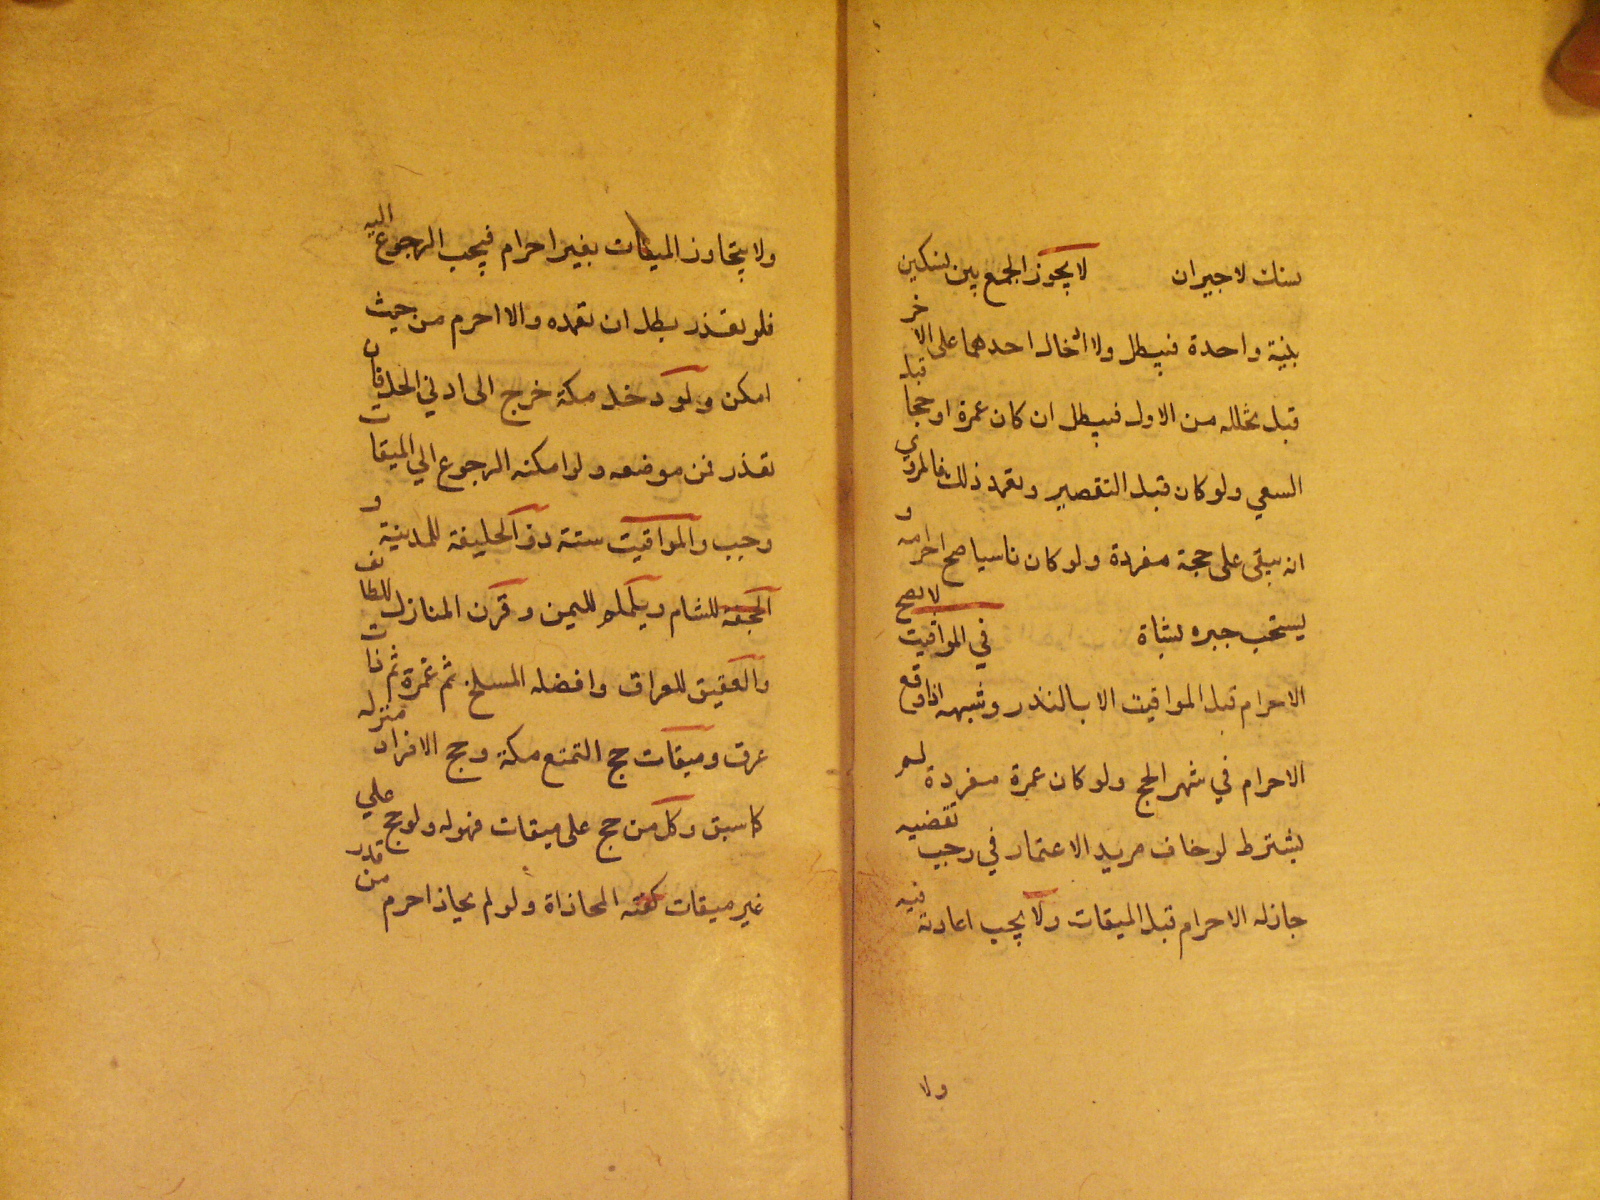 نسك لا جبران لا يجوز الجمع بين نسكين
بنية واحدة فيبطل ولا ادخال احدهما على الاخر
قبل تحلله من الاول فيبطل ان كان عمرة او حجا قبل
السعي ولو كان قبل التقصير وتعمد ذلك فالمروي
انه يبقى على حجة مفردة ولو كان ناسيا صح احرامه و
يستحب جبره بشاة في المواقيت لا يصح
الاحرام قبل المواقيت الا بالنذر وشبهه اذا وقع
الاحرام في شهر الحج ولو كان عمرة مفردة لم
يشترط لو خاف مريد الاعتمار في رجب تقضيه
جاز له الاحرام قبل الميقات ولا يجب اعادته فيه
ولا
ولا يتجاوز الميقات بغير احرام فيجب الرجوع اليه
فلو تعذر بطل ان تعمده والا احرم من حيث
امكن ولو دخل مكة خرج الى ادني الحل فان
تعذر فمن موضعه ولو امكنه الرجوع الي الميقات
وجب والمواقيت ستة ذو الحليفة للمدينة و
الجحفة للشام ويلملم لليمن وقرن المنازل للطائف
والعقيق للعراق وافضله المسلخ ثم غمرة ثم ذات
عرق وميقات حج التمتع مكة وحج الافراد منزله
كما سبق وكل من حج على ميقات فهو له ولو حج علي
غير ميقات كفته المحاذاة ولو لم يحاذ احرم من قدر